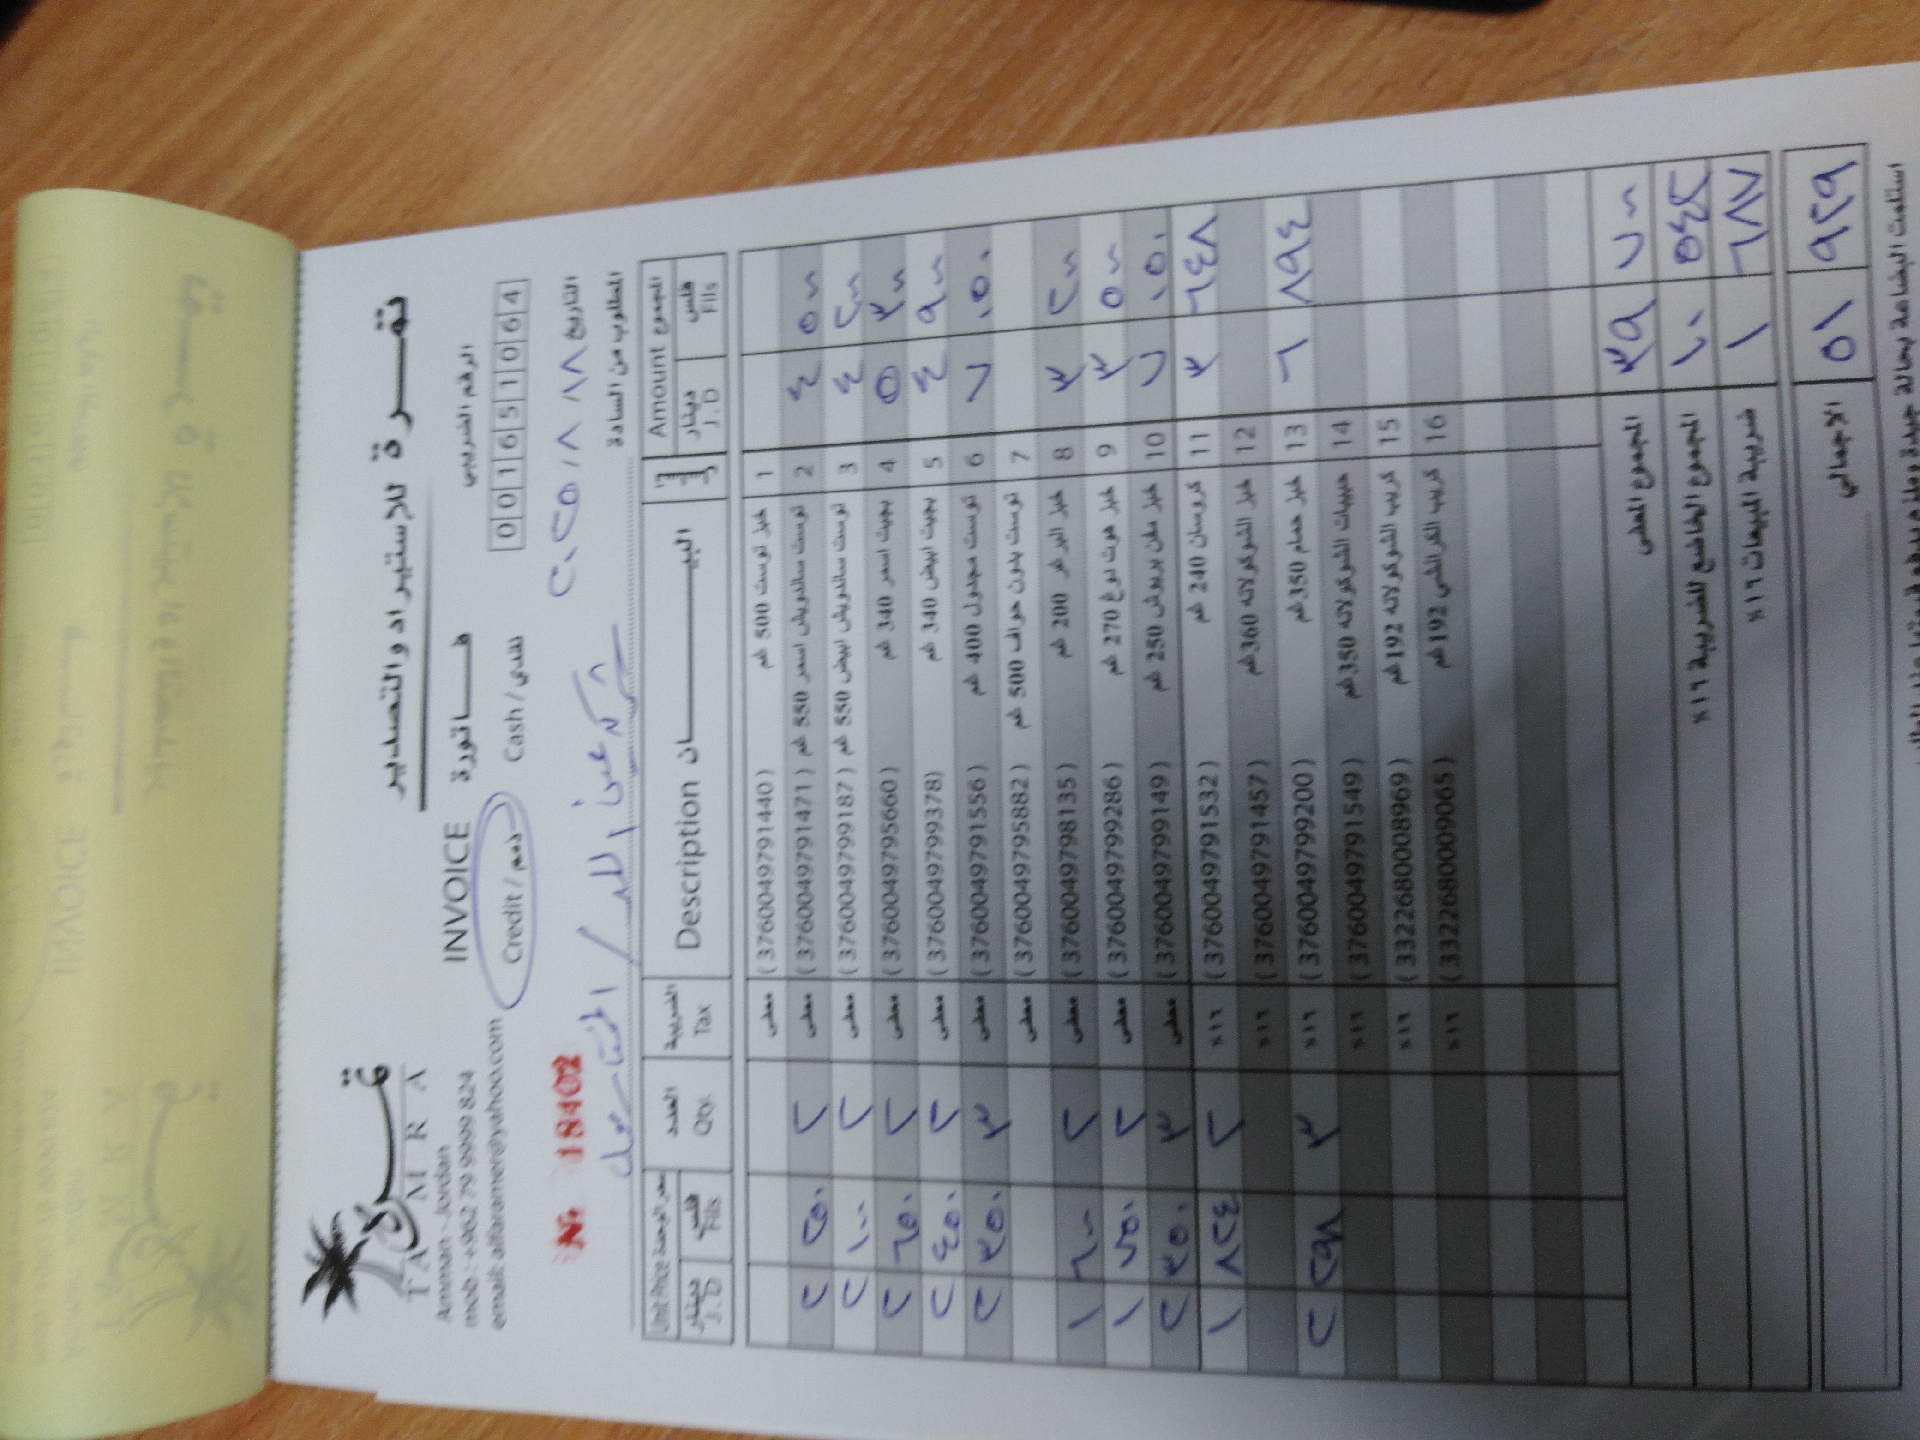 تمـــرة للإستيراد والتصدير
تمرة
TAMRA
Amman - Jordan
mob.: +962 79 9999 824
INVOICE فـــاتورة
الرقم الضريبي
001651064
Credit / ذمم Cash / نقدي
No 18402
التاريخ ٢٠٢٥/٨/١٨
المطلوب من السادة
Unit Price سعر الوحدة العدد الضريبة البيـــــان المجموع Amount
دينار J.D فلس Fils Qty. Tax Description دينار J.D فلس Fils
معفى (3760049791440) خبز توست 500 غم 1
٢ ٢٥٠ ٢ معفى (3760049791471) توست ساندويش اسمر 550 غم 2 ٤ ٥٠٠
٢ ١٠٠ ٢ معفى (3760049799187) توست ساندويش ابيض 550 غم 3 ٤ ٢٠٠
٢ ٦٥٠ ٢ معفى (3760049795660) بجيت اسمر 340 غم 4 ٥ ٣٠٠
٢ ٤٥٠ ٢ معفى (3760049799378) بجيت ابيض 340 غم 5 ٤ ٩٠٠
٢ ٣٥٠ ٣ معفى (3760049791556) توست مجدول 400 غم 6 ٧ ٠٥٠
معفى (3760049795882) توست بدون حواف 500 غم 7
١ ٦٠٠ ٢ معفى (3760049798135) خبز البرغر 200 غم 8 ٣ ٢٠٠
١ ٧٥٠ ٢ معفى (3760049799286) خبز هوت دوغ 270 غم 9 ٣ ٥٠٠
٢ ٣٥٠ ٣ معفى (3760049799149) خبز ملفن بريوش 250 غم 10 ٧ ٠٥٠
١ ٨٢٤ ٢ ١٦٪ (3760049791532) كروسان 240 غم 11 ٣ ٦٤٨
١٦٪ (3760049791457) خبز الشوكولاته 360غم 12
٢ ٢٩٨ ٣ ١٦٪ (3760049799200) خبز حمام 350غم 13 ٦ ٨٩٤
١٦٪ (3760049791549) حبيبات الشوكولاته 350غم 14
١٦٪ (3322680008969) كريب الشوكولاته 192غم 15
١٦٪ (3322680009065) كريب الكراتشي 192غم 16
المجموع المعفى ٣٩ ٧٠٠
المجموع الخاضع للضريبة ١٦٪ ١٠ ٥٤٢
ضريبة المبيعات ١٦٪ ١ ٦٨٧
الاجمالي ٥١ ٩٢٩
استلمت البضاعة بحالة جيدة